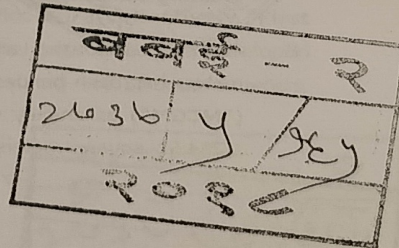 बबई - २
२७३७ ५ १६५
२०१८